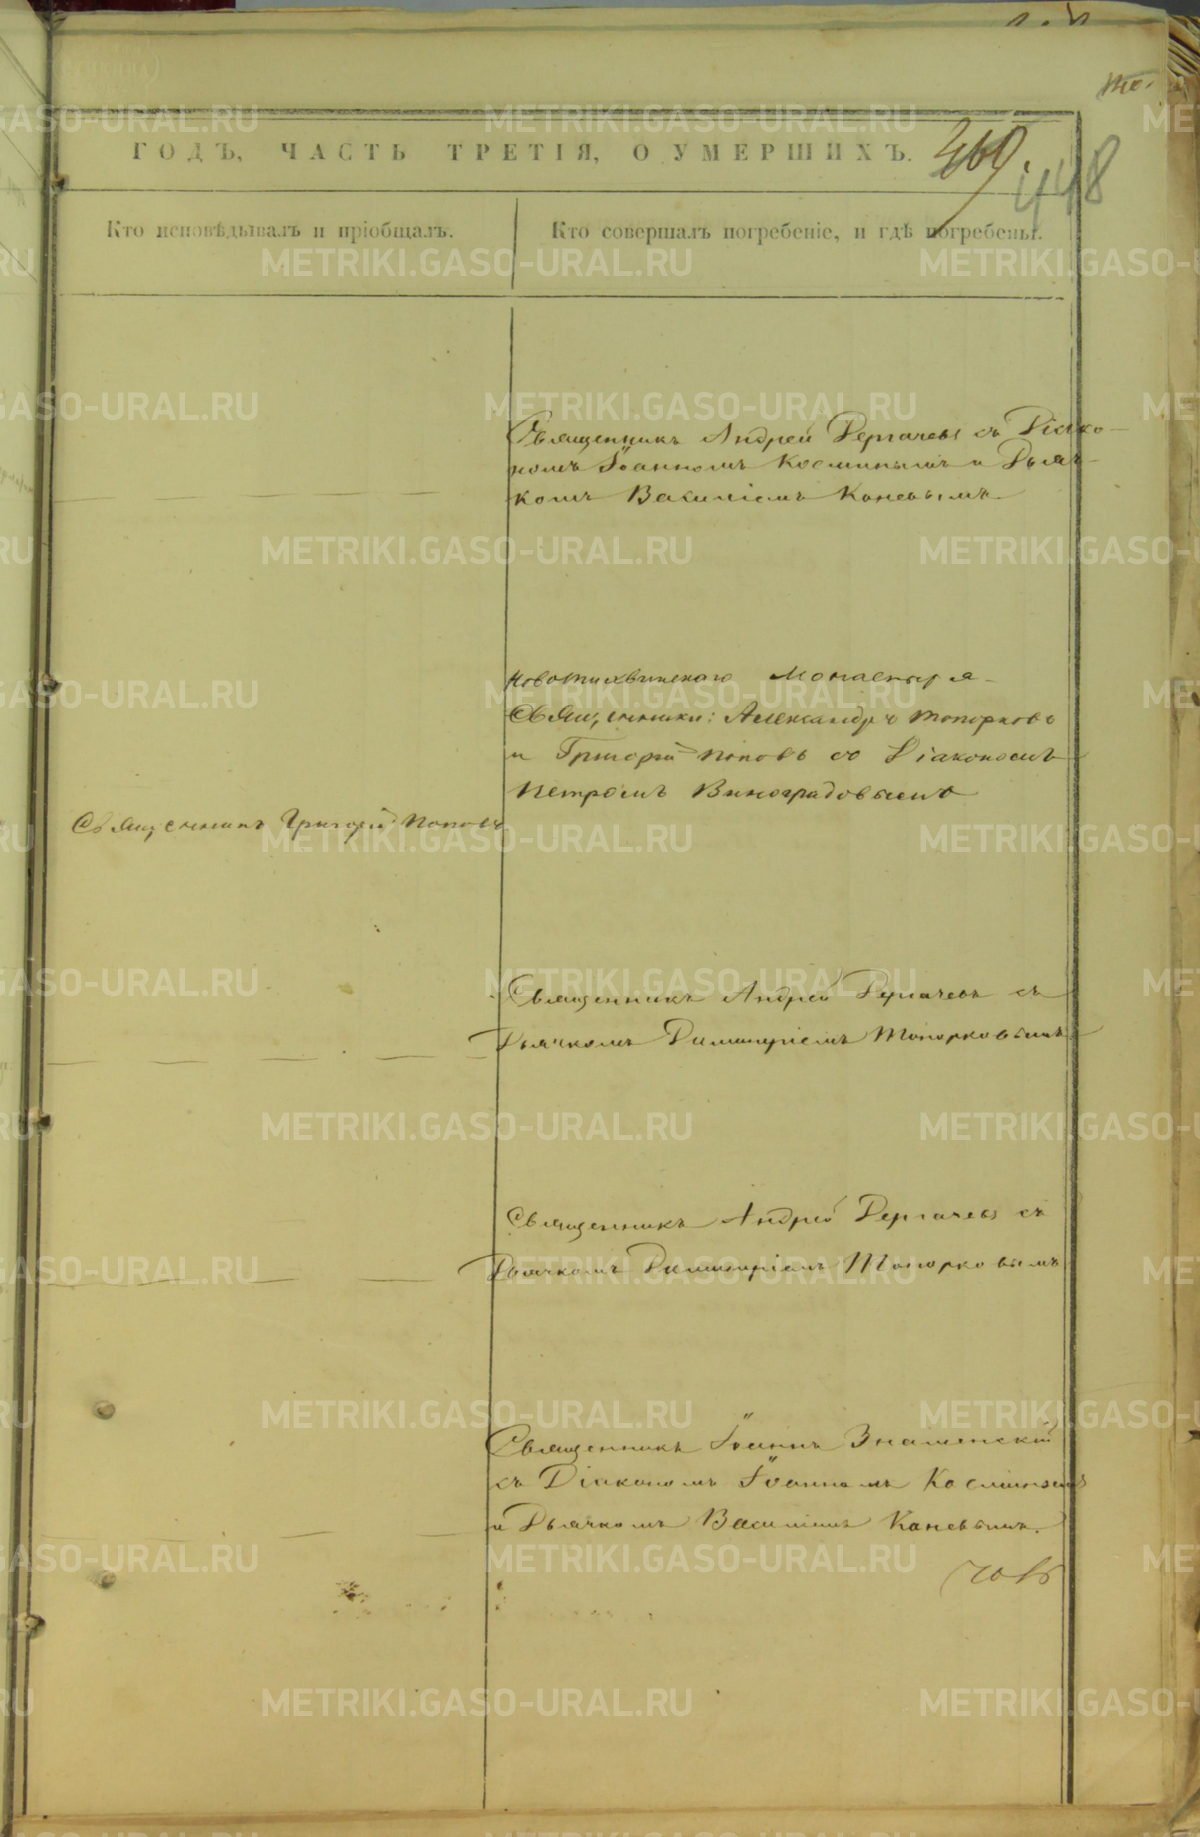 ГОДЪ, ЧАСТЬ ТРЕТІЯ, О УМЕРШИХЪ.
460.
448
Кто исповѣдывалъ и пріобщалъ.
Кто совершалъ погребеніе, и гдѣ погребены.
Священникъ Андрей Дергачевъ съ Діако-
номъ Іоанномъ Косминымъ и Дьяч-
комъ Василіемъ Каневымъ.
Новотихвинскаго Монастыря
Священники: Александръ Топорковъ
и Григорій Поповъ со Діакономъ
Петромъ Виноградовымъ
Священникъ Григорій Поповъ
Священникъ Андрей Дергачевъ съ
Дьячкомъ Димитріемъ Топорковымъ
Священникъ Андрей Дергачевъ съ
Дьячкомъ Димитріемъ Топорковымъ
Священникъ Іоаннъ Знаменскій
съ Діакономъ Іоанномъ Косминымъ
и Дьячкомъ Василіемъ Каневымъ.
METRIKI.GASO-URAL.RU